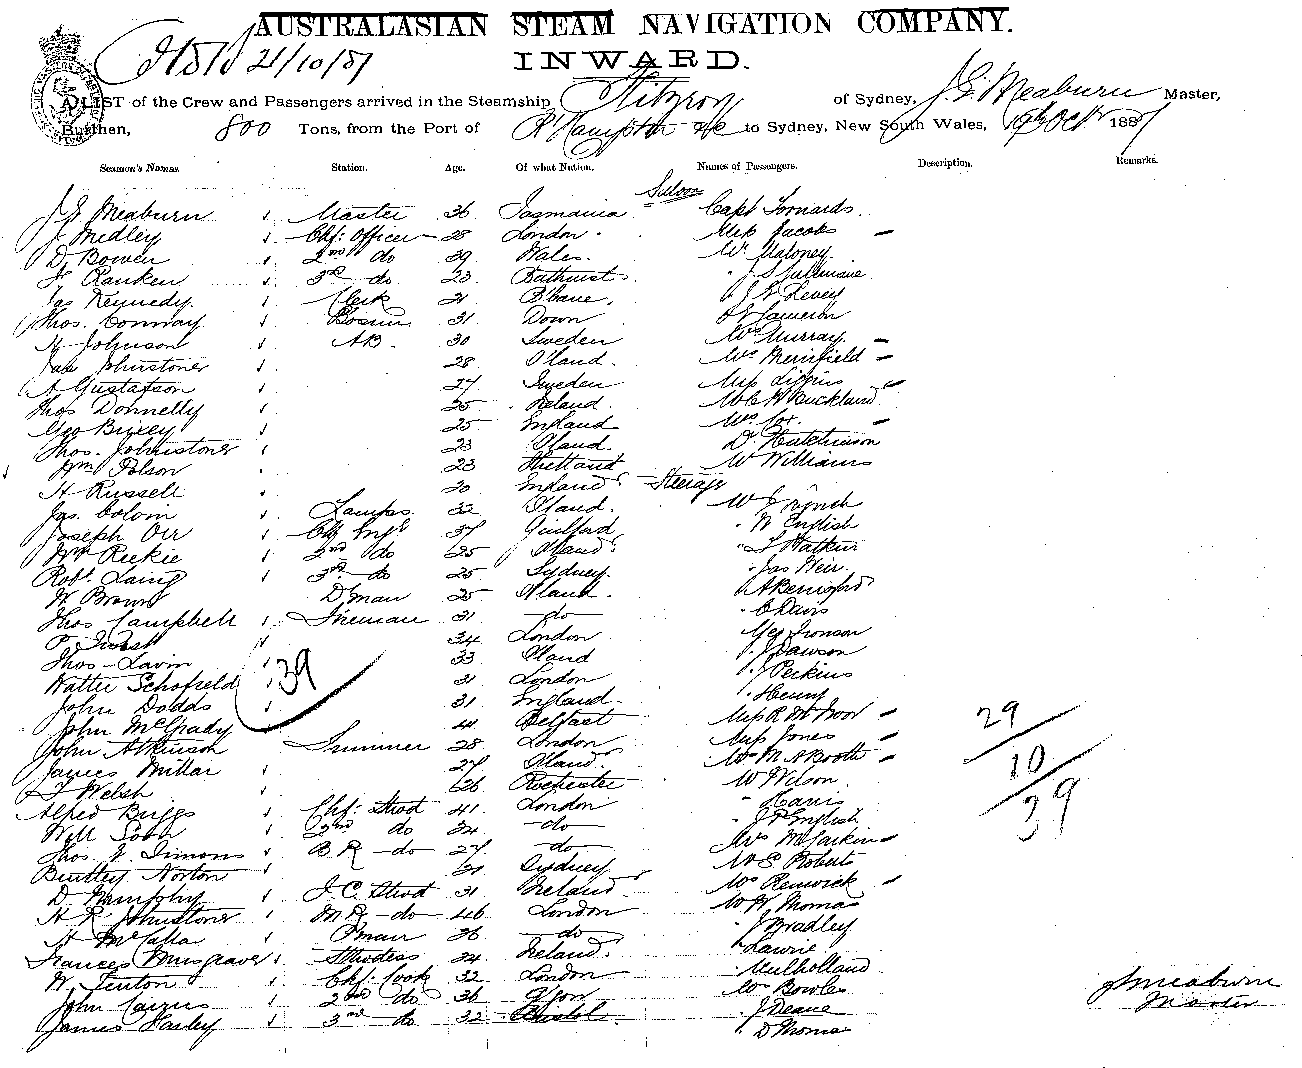 AUSTRALASIAN STEAM NAVIGATION COMPANY.
21/10/87 INWARD.
A LIST of the Crew and Passengers arrived in the Steamship Fitzroy of Sydney, J. G. Meaburn Master,
Burthen, 800 Tons, from the Port of R'Hampton &c to Sydney, New South Wales, 19th Octr 1887
Seamen's Names. Station. Age. Of what Nation. Names of Passengers. Description. Remarks.
Saloon
J. G. Meaburn Master 36 Tasmania Capt
J Medley Chf: Officer 28 London. Mrs Jacobs
D Bowen 2nd do 29 Wales. Mr Maloney
Ranken 3rd do 23 Bathurst J S
Jas Kennedy Clerk 21 B'bane. J Levey
Thos. Conway Bosun 31 Down Cameron
H Johnson AB. 30 Sweden Mrs Murray
Jas Johnstone 28 S'land. Mrs Merrifield
A Gustafson 27 Sweden Mrs
Thos Donnelly 25 Ireland. Mr C H Buckland
Geo Bixey 25 England Mrs Cox.
Thos. Johnstone 23 S'land. Dr Hutchinson
Wm Polson 23 Shetland Mr Williams
H Russell 20 England Steerage
Jas. Colvin Lamps 32 S'land. Mr J Lynch
Joseph Orr Chf Engr 37 Guilford W English
Wm Reekie 2nd do 25 S'land J Watkins
Robt. Laing 3rd do 25 Sydney. Jas Weir.
W Brown D'man 25 S'land. A Berrisford
Thos Campbell Fireman 31 do C Davis
London Geo Ironson
Thos Lavin 33 S'land J Dawson
Walter Schofield 31 London J Perkins
39
John Dodds 31 England. Henry
John McGrady Belfast Mrs R M Moor
29
John Atkinson Trimmer 28 London Mrs Jones
James Millar 27 S'land. M A Booth
10
T Welsh 26 Rochester Mr J Wilson
39
Alfred Briggs Chf: Stwd 41. London Harris
Will 2nd do 34 do J P English
Thos J. Simons B R do 27 do Mrs McLarkin
Bentley Norton 21 Sydney Mr S Roberts
D Humphry F. C. Stwd 31 Ireland Mrs Renwick
H R Johnstone M R do 46 London Mr H Thomas
H McCalla P'man 36 do J Bradley
Frances Musgrave Stwdess 34 Ireland. Lawrie
W. Fenton Chf. Cook 32 London Mulholland
John Cairns 2nd do 36 Mrs Bowles
James Harley 3rd do 32 Bristol. J Deane
D Thomas
J G Meaburn
Master